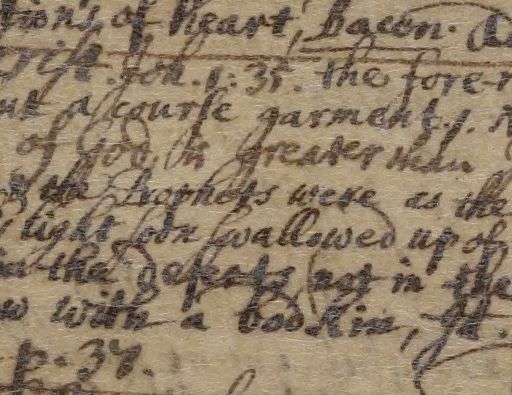 tions of heart, Bacon.
rist. Joh. 5: 35. the fore-r
ut a course garment.
of God, is greater than
the Prophets were as the
light soon swallowed up of
in the defeats not in the
w with a bodkin,
p. 37.